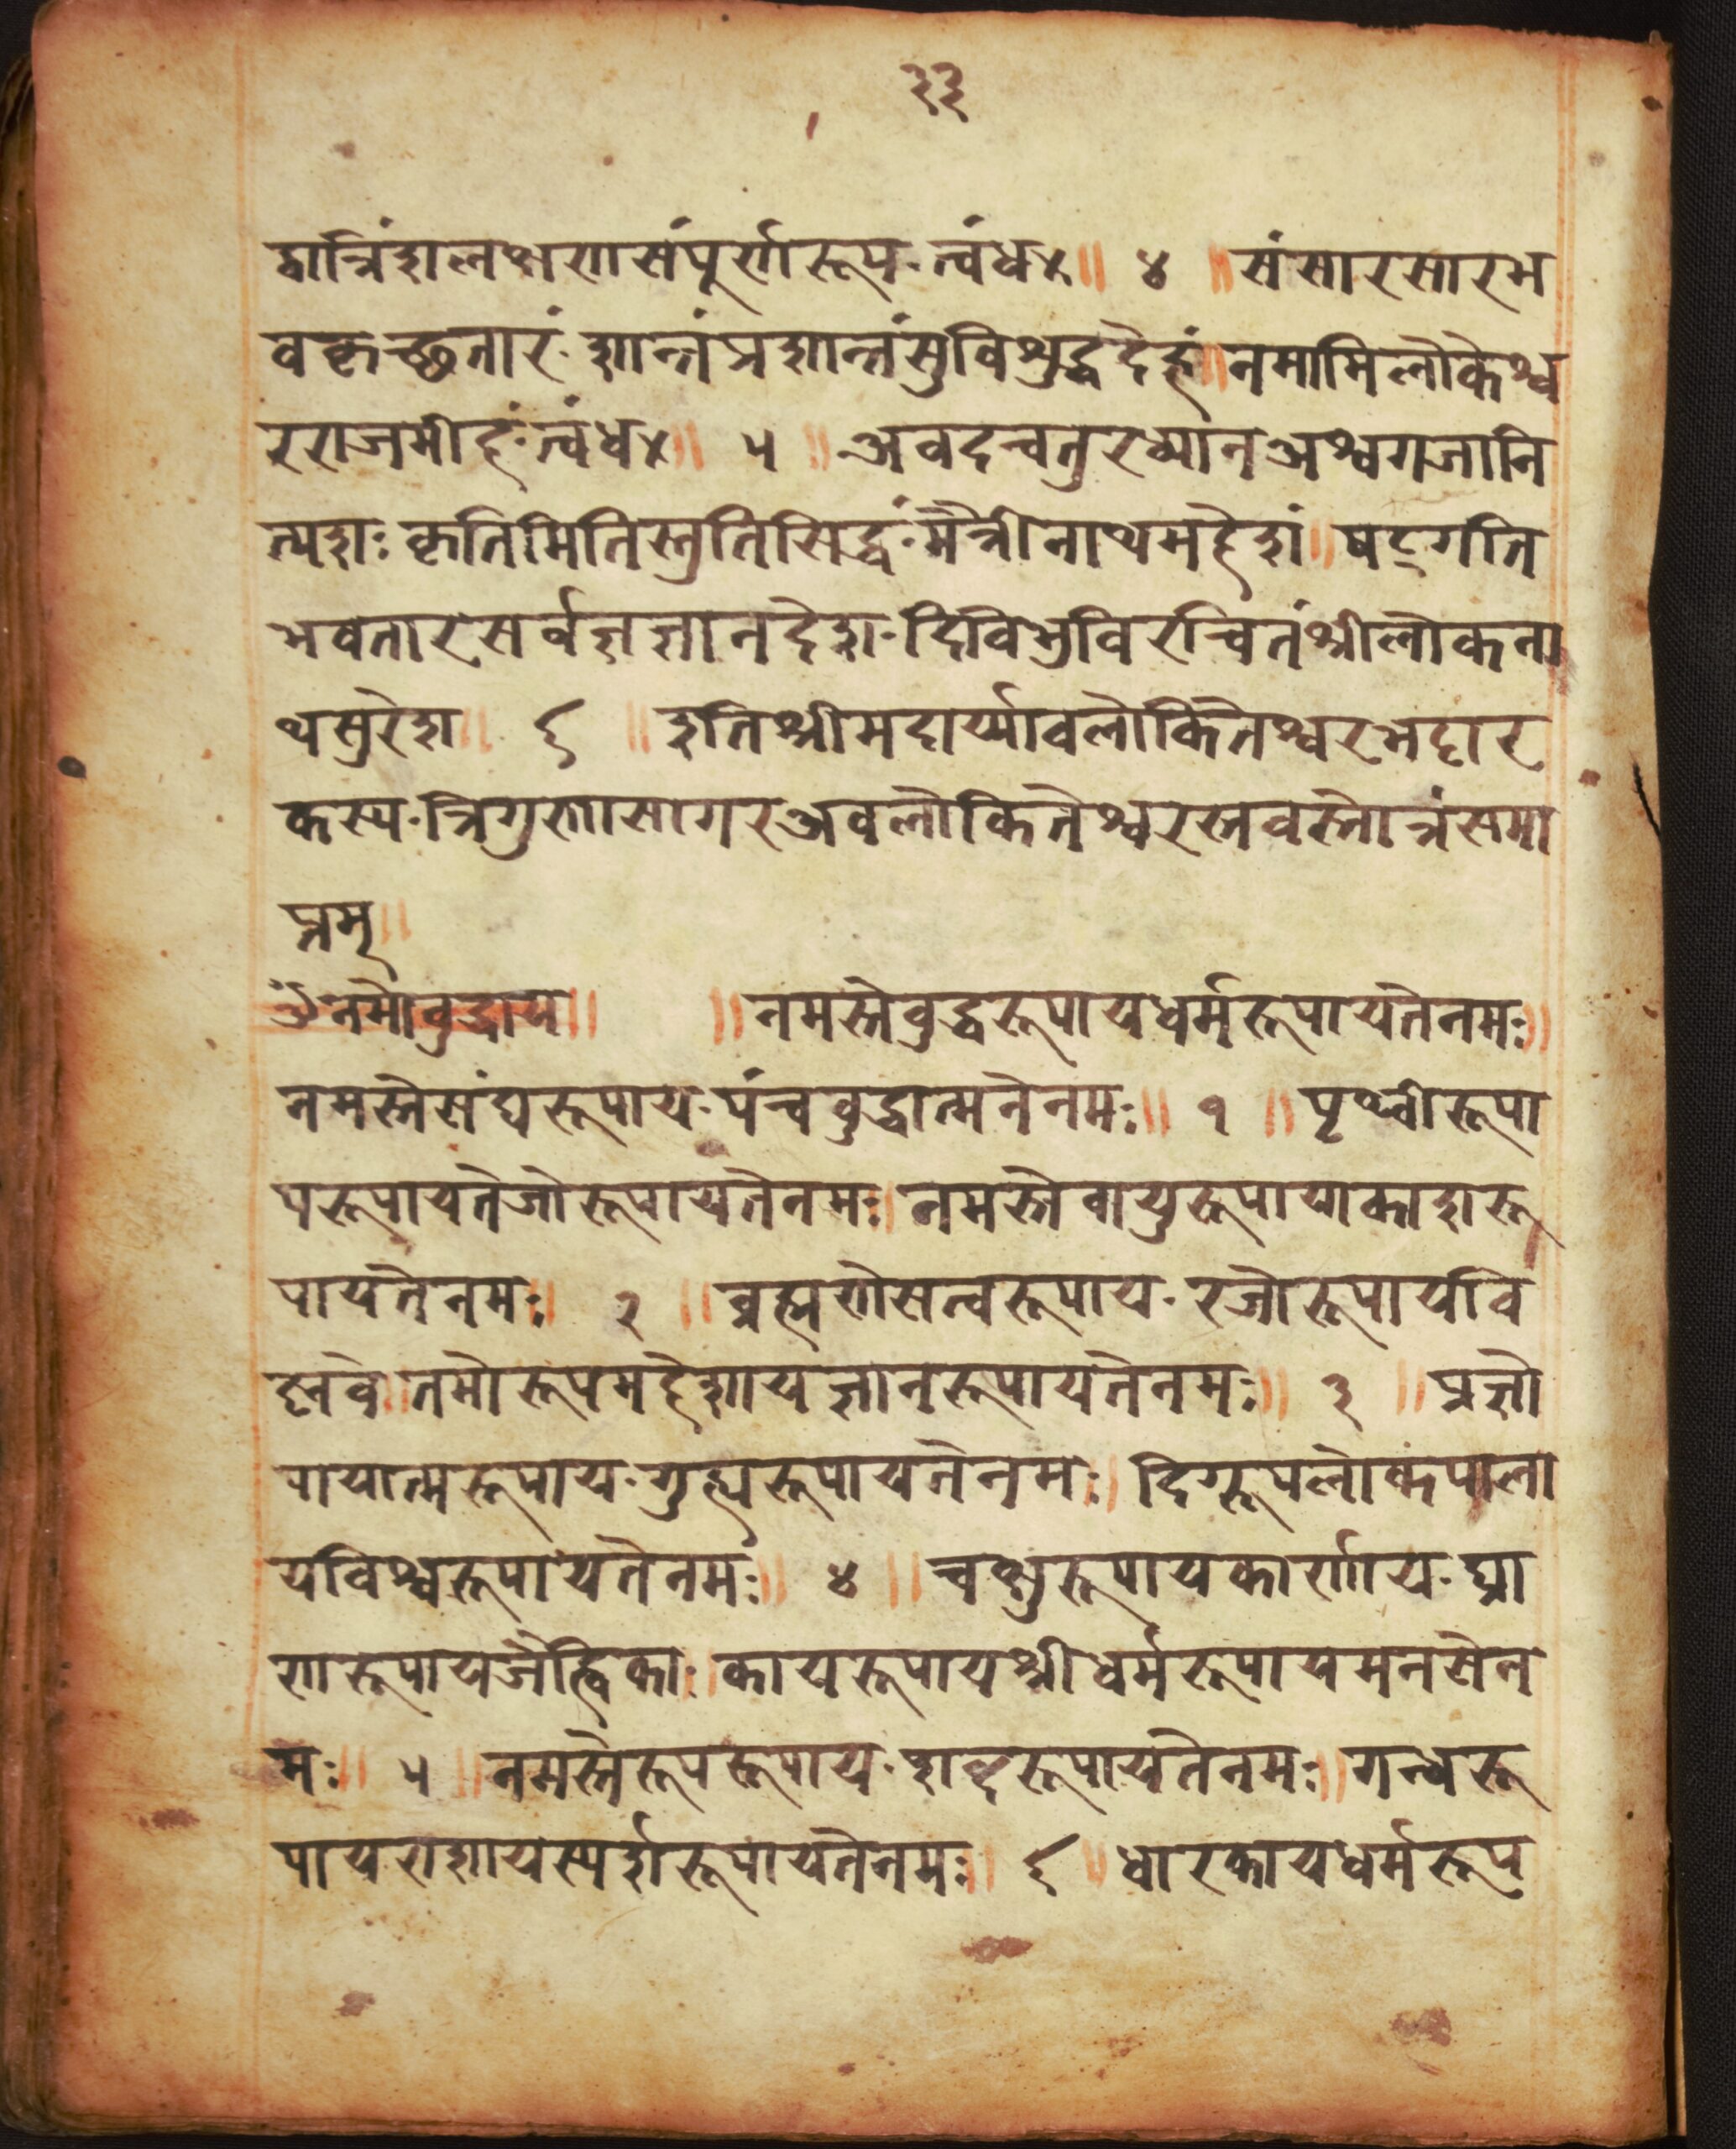 ३३
द्वात्रिंशलक्षणसंपुर्णरूप· त्वंध४॥ ४ ॥ संसारसारभ
वकृच्छतारं· शान्तंप्रशान्तंसुविशुद्धदेहं॥नमामिलोकेश्व
रराजमीहं· त्वंध४॥ ५ ॥ अवदचतुरध्यान अश्वगजानि
त्यशः कृतिमितिस्तुतिसिद्धं· मैत्रीनाथमहेशं॥ षट्गति
भवतारेसर्वज्ञज्ञानदेश· दिविभुविरचितंश्रीलोकना
थसुरेश॥ ६ ॥ इतिश्रीमदार्य्यावलोकितेश्वरभट्टार
कस्य· त्रिगुणसागरअवलोकितेश्वरस्तवस्तोत्रंसमा
प्तम्॥
ॐनमोवुद्धाय॥ ॥नमस्तेवुद्धरूपायधर्मरूपायतेनमः॥
नमस्तेसंघरूपाय· पंचवुद्धात्मनेनमः॥ १ ॥ पृथ्वीरूपा
परूपायतेजोरूपायतेनमः॥ नमस्तेवायुरूपायाकाशरू
पायतेनमः॥ २ ॥ व्रह्मणेसत्वरूपाय· रजोरूपायवि
ष्नवे॥तमोरूपमहेशायज्ञानरूपायतेनमः॥ ३ ॥ प्रज्ञो
पायात्मरूपाय· गुह्यरूपायतेनमः॥ दिग्रूपलोकपाला
यविश्वरूपायतेनमः॥ ४ ॥ चक्षुरूपायकार्णाय· घ्रा
णरूपायजेह्विकाः॥ कायरूपायश्रीधर्मरूपायमनसेन
मः॥ ५ ॥ नमस्तेरूपरूपाय· शब्दरूपायतेनमः॥ गन्धरू
पायराशायस्पर्शरूपायतेनमः॥ ६ ॥ धारकायधर्मरूप